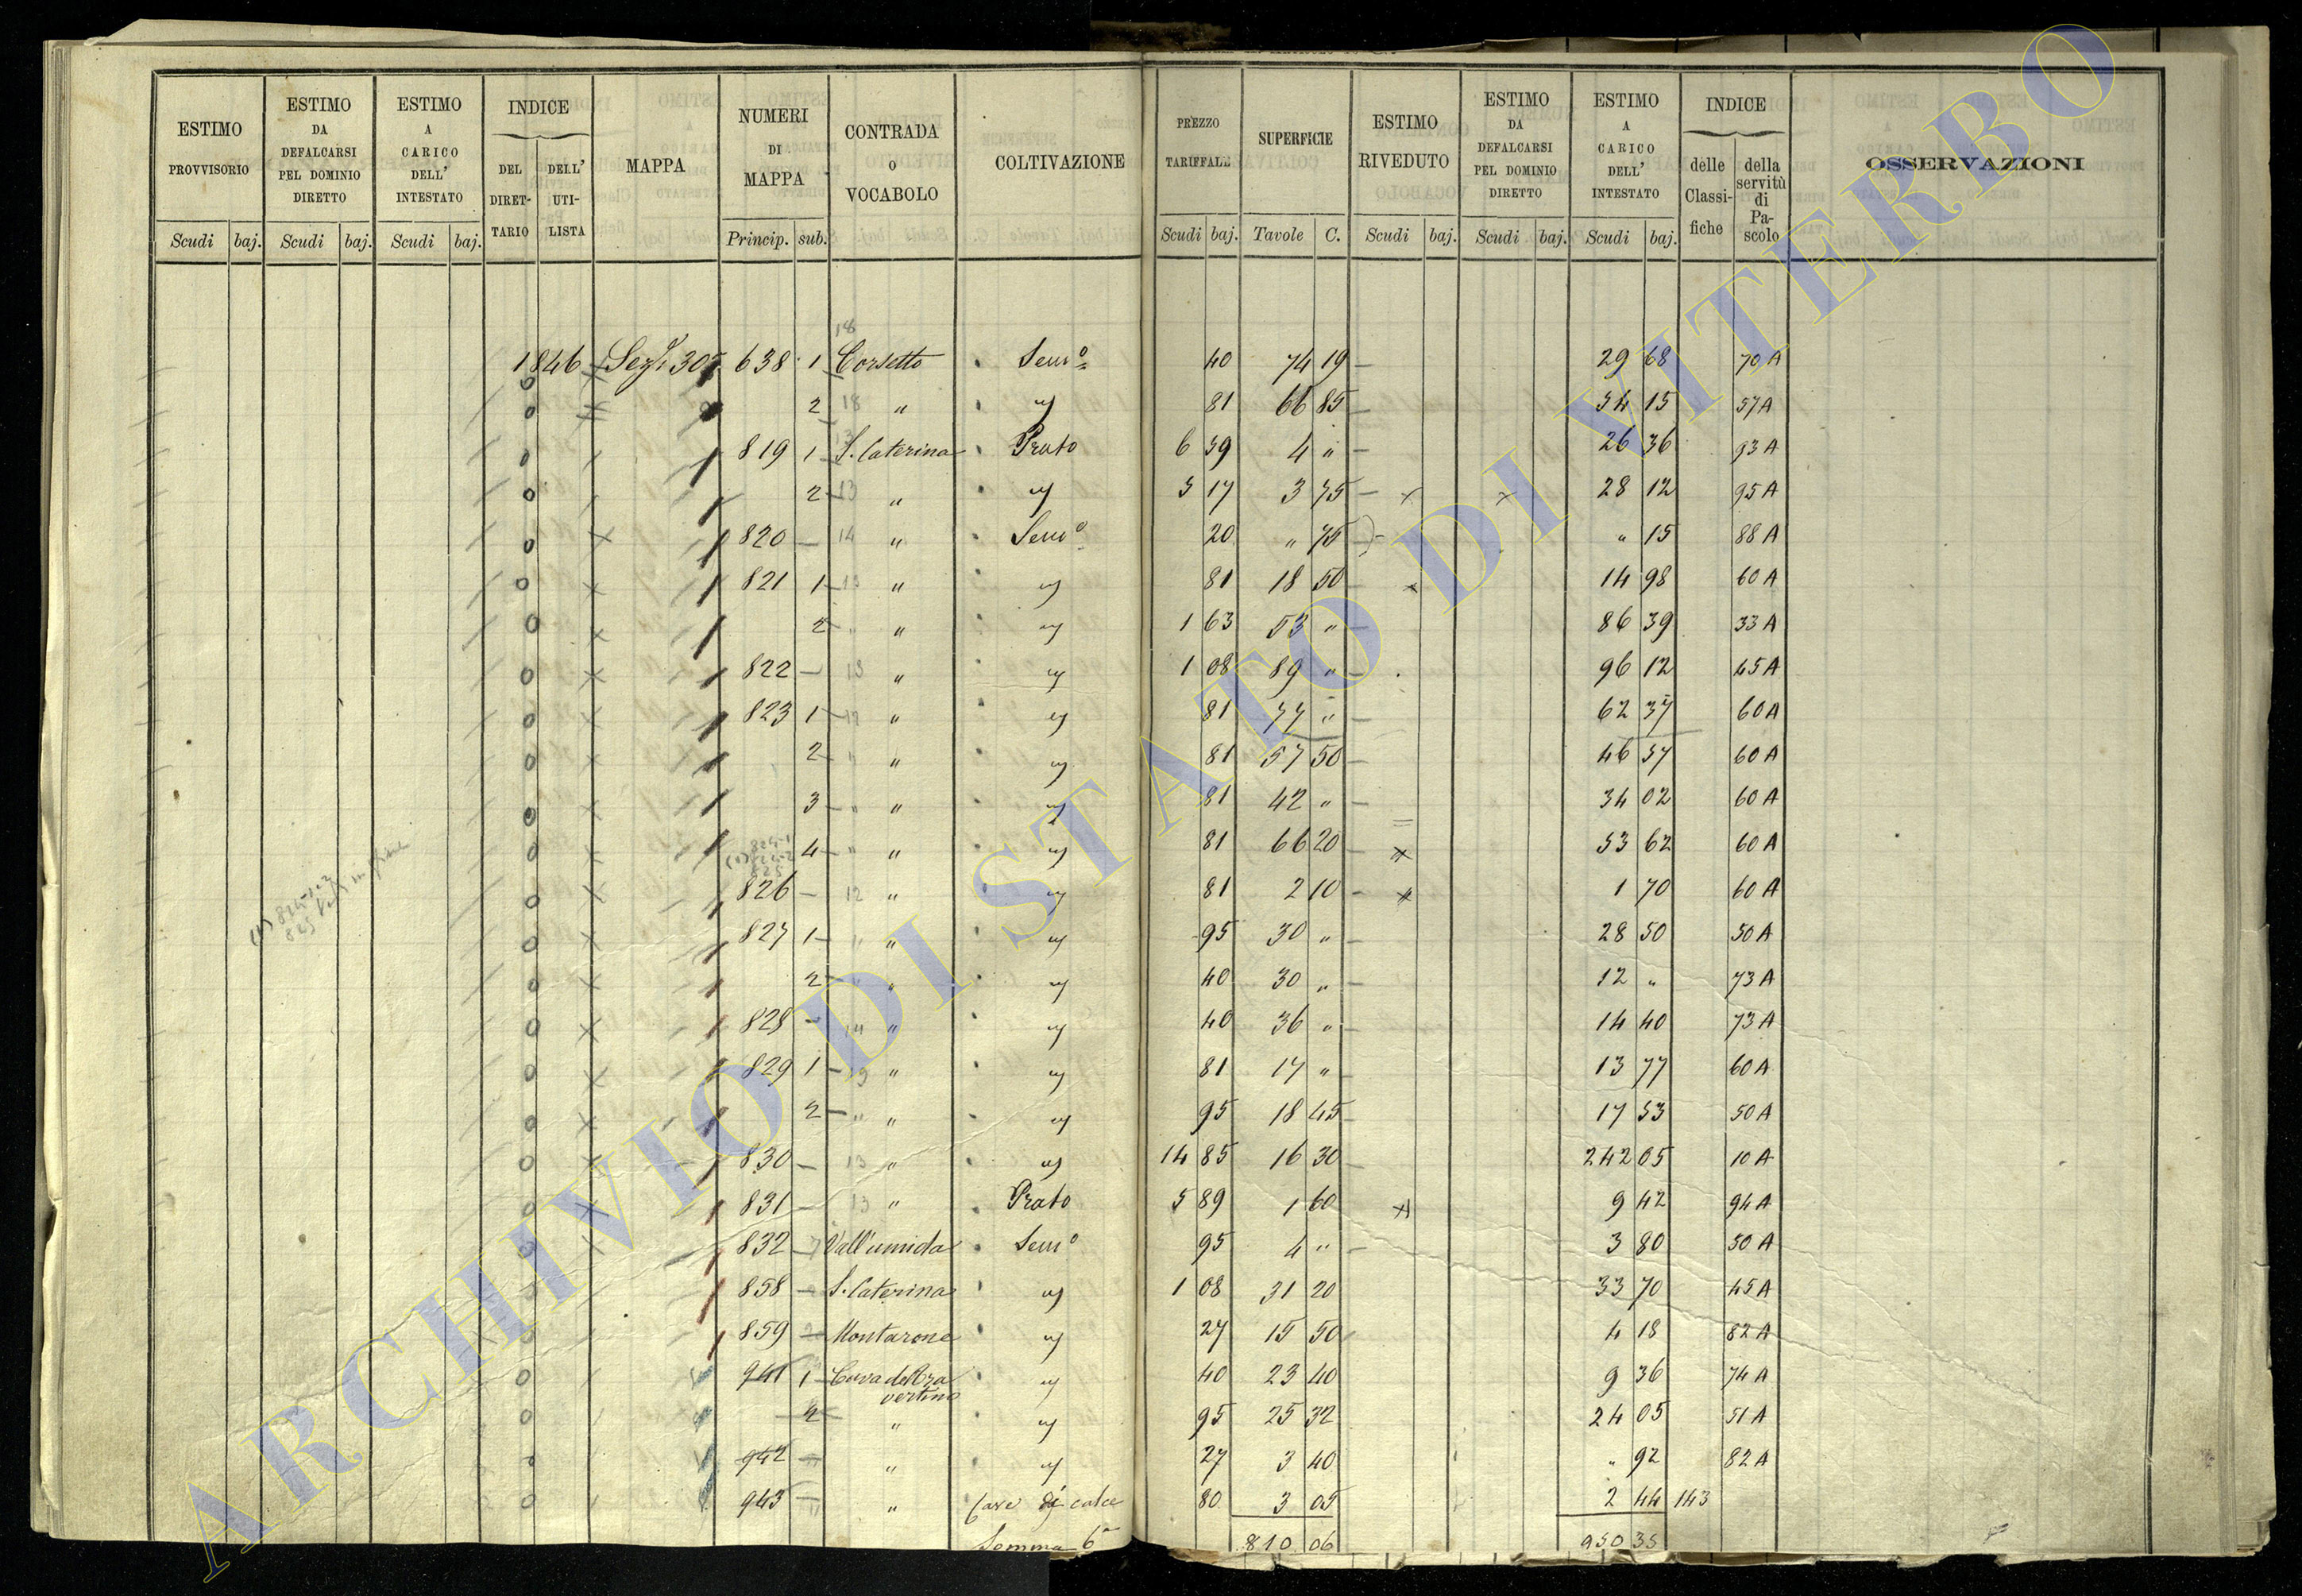 ESTIMO PROVVISORIO
Scudi baj.
ESTIMO DA DEFALCARSI PEL DOMINIO DIRETTO
Scudi baj.
ESTIMO A CARICO DELL' INTESTATO
Scudi baj.
INDICE
DEL DIRET-TARIO
DELL' UTI-LISTA
MAPPA
NUMERI DI MAPPA
Princip. sub.
CONTRADA o VOCABOLO
COLTIVAZIONE
PREZZO TARIFFALE
Scudi baj.
SUPERFICIE
Tavole C.
ESTIMO RIVEDUTO
Scudi baj.
ESTIMO DA DEFALCARSI PEL DOMINIO DIRETTO
Scudi baj.
ESTIMO A CARICO DELL' INTESTATO
Scudi baj.
INDICE
delle Classi-fiche
della servitù di Pa-scolo
OSSERVAZIONI
18
1846 305 638 1 Corsetto Semo 40 74 19 29 68 70 A
2 18 " " 81 66 85 54 15 57 A
819 1 S. Caterina Prato 6 59 4 " 26 36 93 A
2 13 " " 3 75 28 12 95 A
820 14 " Semo 20 " 75 " 15 88 A
821 1 " " 81 18 50 14 98 60 A
2 " " " 1 63 53 " 86 39 33 A
822 13 " " 1 08 89 " 96 12 45 A
823 1 12 " " 81 77 " 62 37 60 A
2 " " " 81 57 50 46 57 60 A
3 " " " 81 42 " 34 02 60 A
4 " " " 81 66 20 53 62 60 A
826 12 " " 81 2 10 1 70 60 A
827 1 " " " 95 30 " 28 50 50 A
2 " " " 40 30 " 12 " 73 A
828 14 " " 40 36 " 14 40 73 A
829 1 " " 81 17 " 13 77 60 A
2 " " " 95 18 45 17 53 50 A
830 13 " " 14 85 16 30 242 05 10 A
831 13 " Prato 5 89 1 60 9 42 94 A
832 Vall'umida Semo 95 4 " 3 80 50 A
858 S. Caterina " 1 08 31 20 33 70 45 A
859 Montarone " 27 15 50 4 18 82 A
941 1 Cava del travertino " 40 23 40 9 36 74 A
2 " " 95 25 32 24 05 51 A
942 " " 27 3 40 " 92 82 A
943 " Cave di calce 80 3 05 2 44 143
Somma 6a 810 06 950 35
ARCHIVIO DI STATO DI VITERBO